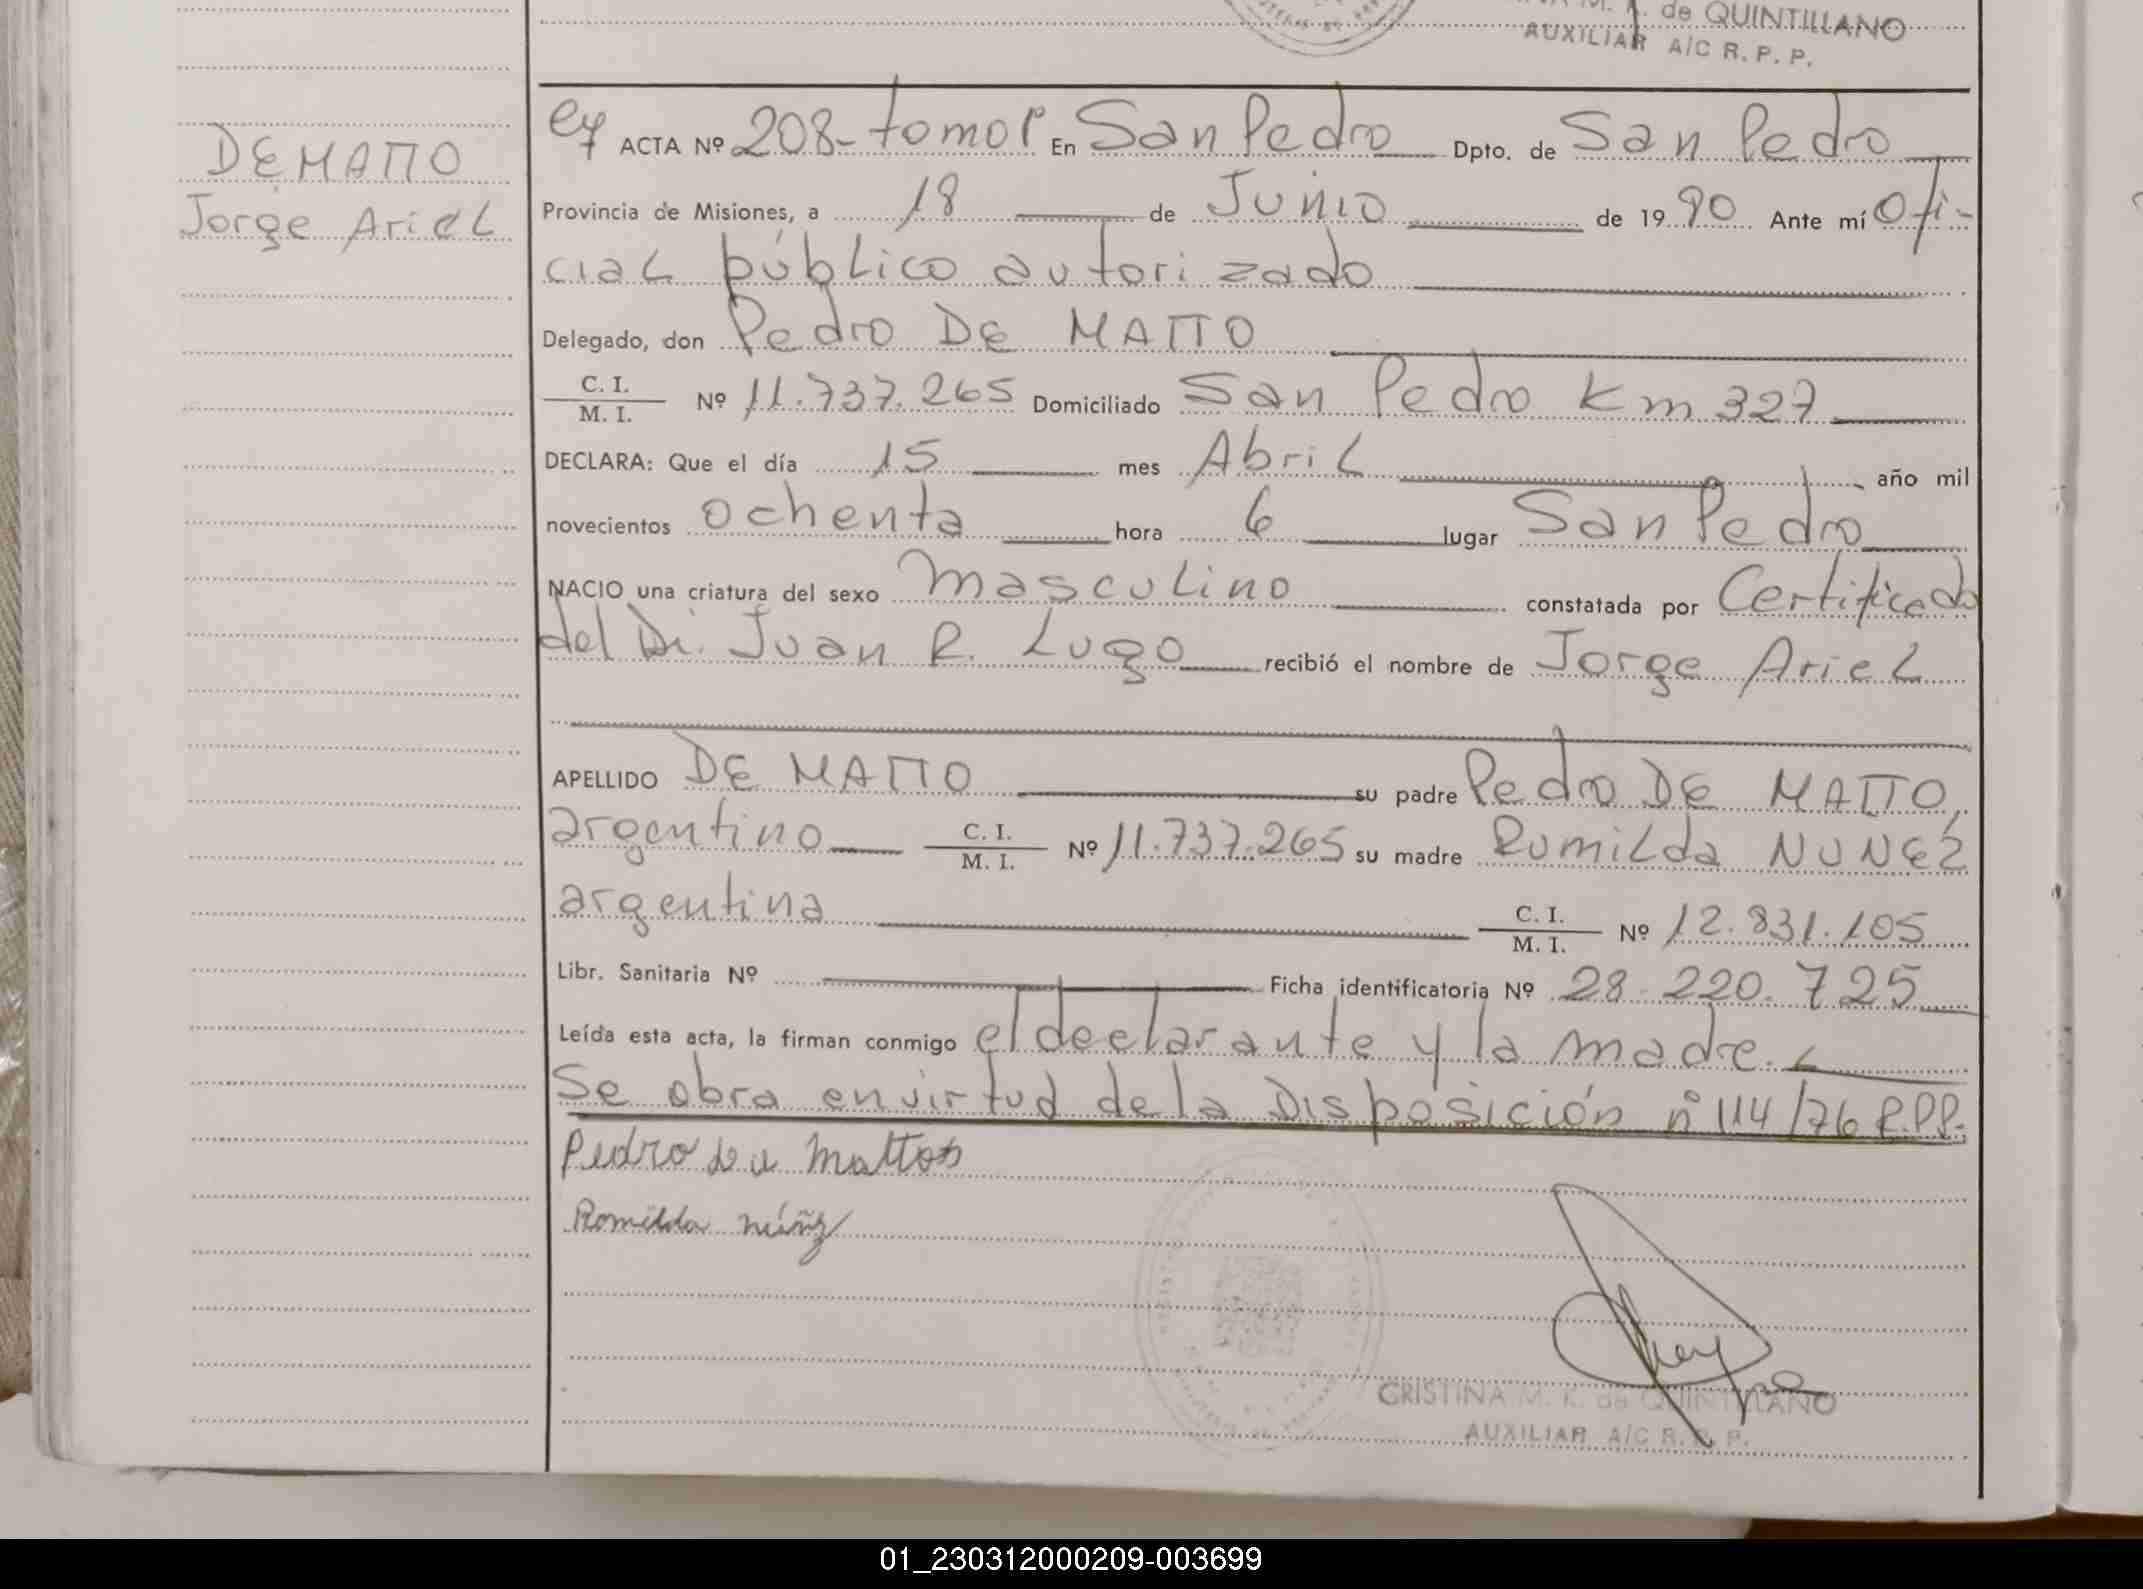 de QUINTILLANO
AUXILIAR A/C R. P. P.
DE MATTO
Jorge Ariel
ACTA Nº 208- tomo I º En San Pedro Dpto. de San Pedro
Provincia de Misiones, a 18 de Junio de 19 80 Ante mí Ofi-
cial público autorizado
Delegado, don Pedro DE MATTO
C. I.
M. I. Nº 11.737.265 Domiciliado San Pedro Km 327
DECLARA: Que el día 15 mes Abril año mil
novecientos ochenta hora 6 lugar San Pedro
NACIO una criatura del sexo masculino constatada por Certificado
del Dr. Juan R. Lugo recibió el nombre de Jorge Ariel
APELLIDO DE MATTO su padre Pedro DE MATTO,
argentino C. I.
M. I. Nº 11.737.265 su madre Romilda NUNEZ
argentina C. I.
M. I. Nº 12.831.105
Libr. Sanitaria Nº Ficha identificatoria Nº 28.220.725
Leída esta acta, la firman conmigo el declarante y la madre.
Se obra en virtud de la Disposición nº 114/76 R.P.P.
Pedro de Mattos
Romilda núñz
CRISTINA M. K. de QUINTILLANO
AUXILIAR A/C R. P. P.
01_230312000209-003699